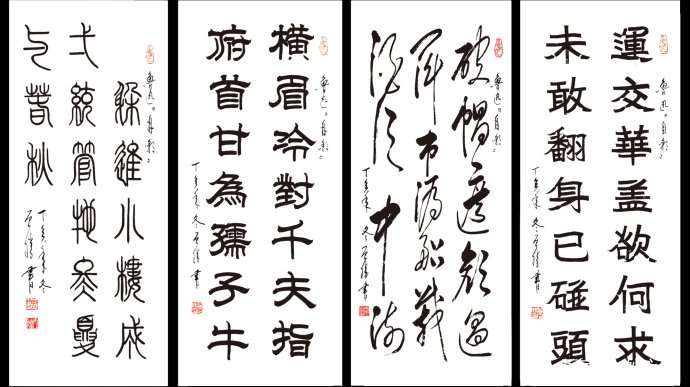 運交華盖欲何求
未敢翻身已碰頭
魯迅。自嘲
丁亥年冬 書
破帽遮顏過
鬧市漏船載
酒泛中流
魯迅。自嘲
丁亥年冬 書
横眉冷對千夫指
俯首甘為孺子牛
魯迅。自嘲
丁亥年冬 書
躲進小樓成
弌統管他冬夏
与春秋
魯迅。自嘲
丁亥年冬
書